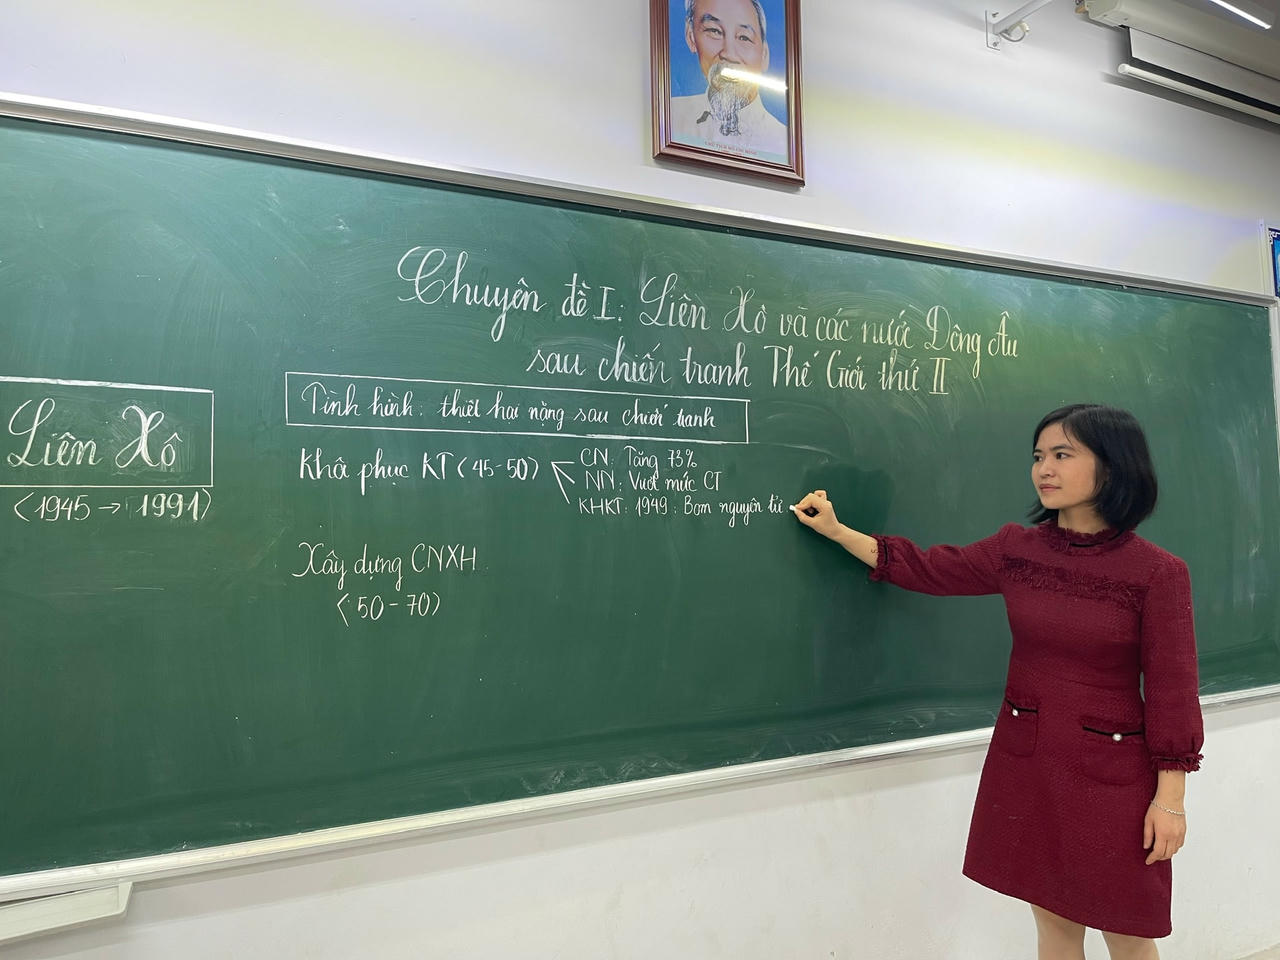 CHỦ TỊCH HỒ CHÍ MINH
Chuyên đề I: Liên Xô và các nước Đông Âu
sau chiến tranh Thế Giới thứ II
Liên Xô
(1945 → 1991)
Tình hình: thiệt hại nặng sau chiến tranh
Khôi phục KT (45-50)
CN: Tăng 73%
NN: Vượt mức CT
KHKT: 1949: Bom nguyên tử.
Xây dựng CNXH
(50-70)